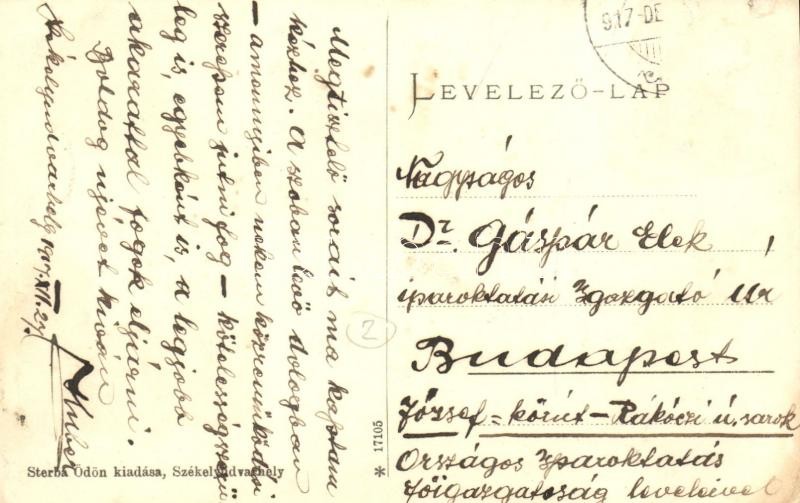 Megtisztelő sorait ma kaptam
kézhez. A szóban levő dologban
– amennyiben nekem közreműködési
szerepem jutni fog – kötelességszerü
leg is, egyebként is, a legjobb
akarattal fogok eljárni.
Boldog ujévet kíván
Székelyudvarhely 1917. XII. 29.
Sterba Ödön kiadása, Székelyudvarhely
* 17105
2
917-DE
LEVELEZŐ-LAP
Nagyságos
Dr. Gáspár Elek
iparoktatási igazgató Úr
Budapest
József-körút – Rákóczi ú. sarok
Országos Iparoktatás
Főigazgatóság leveleivel